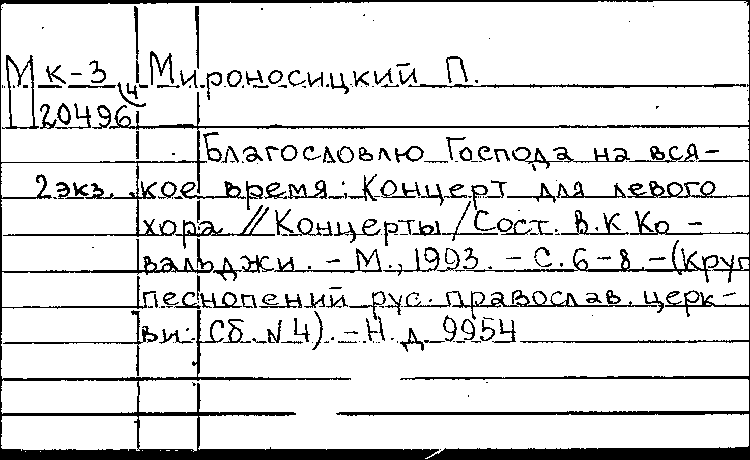 М к-3 Мироносицкий П.
20496 (4
Благословлю Господа на вся-
2экз. кое время: Концерт для левого
хора // Концерты / Сост. В.К Ко-
вальджи. - М., 1993. - С. 6-8. - (Круг
песнопений рус. православ. церк-
ви: Сб. N 4). - Н. д. 9954